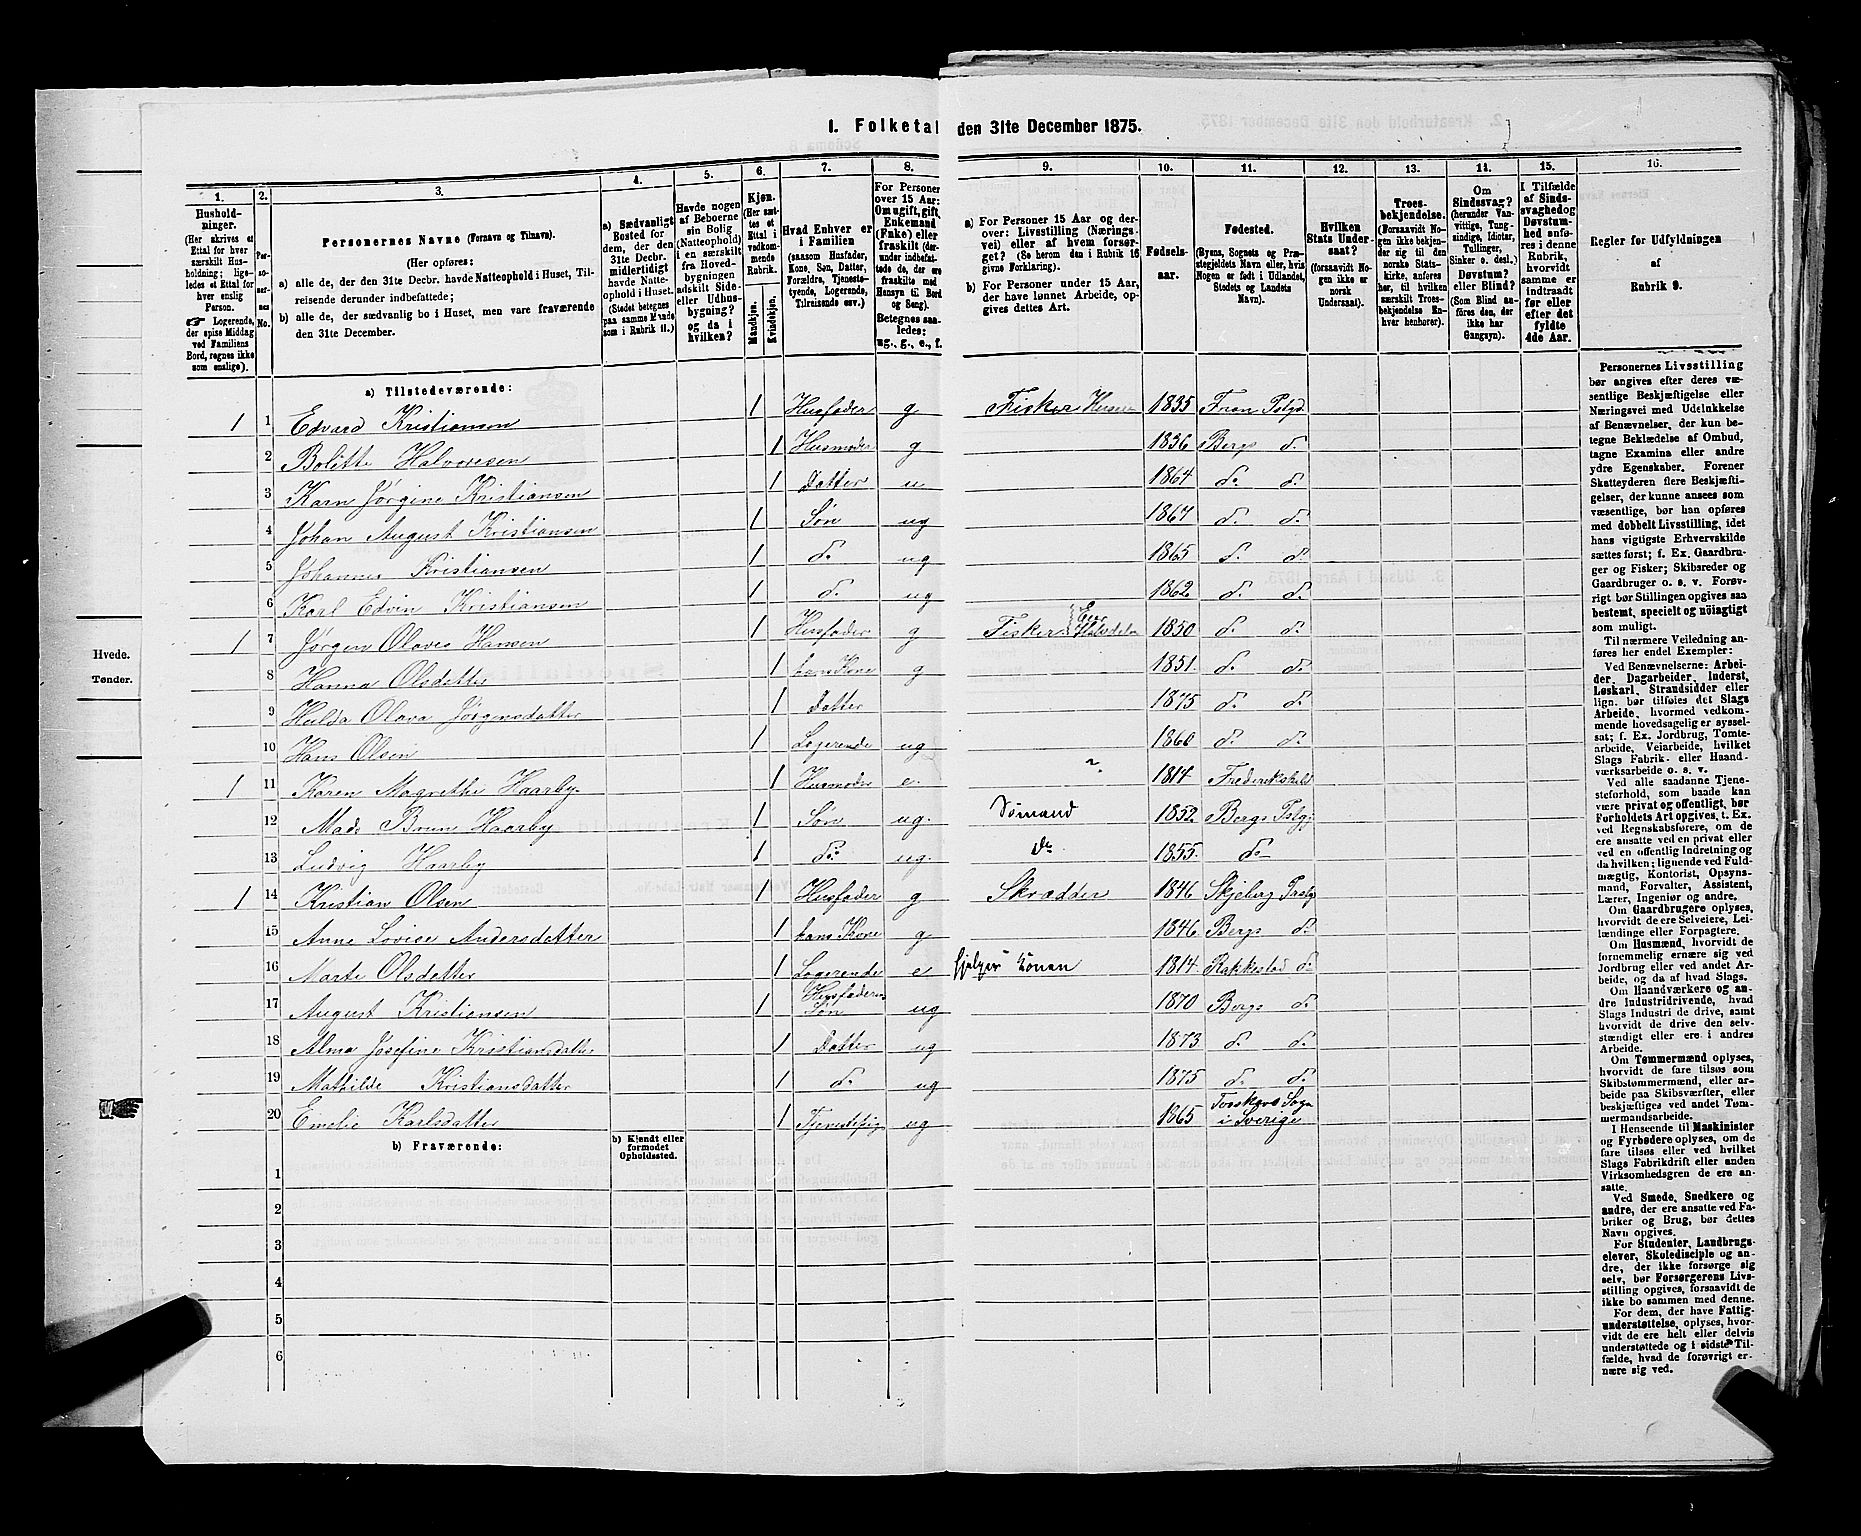 I. Folketal den 31te December 1875.
1. 2. 3. 4. 5. 6. 7. 8. 9. 10. 11. 12. 13. 14. 15. 16.
Hushold-
ninger.
(Her skrives et
Ettal for hver
særskilt Hus-
holdning; lige-
ledes et Ettal for
hver enslig
Person.
☞ Logerende,
der spise Middag
ved Familiens
Bord, regnes ikke
som enslige).
Per-
so-
ner-
nes
No.
Personernes Navne (Fornavn og Tilnavn).
(Her opføres:
a) alle de, der den 31te Decbr. havde Natteophold i Huset, Til-
reisende derunder indbefattede;
b) alle de, der sædvanlig bo i Huset, men vare fraværende
den 31te December.
a) Sædvanligt
Bosted for
dem, der den
31te Decbr.
midlertidigt
havde Natte-
ophold i Huset.
(Stedet betegnes
paa samme Maade
som i Rubrik 11.)
Havde nogen
af Beboerne
sin Bolig
(Natteophold)
i en særskilt
fra Hoved-
bygningen
adskilt Side-
eller Udhus-
bygning?
og da i
hvilken?
Kjøn.
(Her sæt-
tes et
Ettal i
vedkom-
mende
Rubrik.
Mandkjøn.
Kvindekjøn.
Hvad Enhver er
i Familien
(saasom Husfader,
Kone, Søn, Datter,
Forældre, Tjeneste-
tyende, Logerende,
Tilreisende osv.)
For Personer
over 15 Aar:
Om ugift, gift,
Enkemand
(Enke) eller
fraskilt (der-
under indbefat-
tede de, der ere
fraskilte med
Hensyn til Bord
og Seng).
Betegnes saa-
ledes:
ug., g., e., f.
a) For Personer 15 Aar og der-
over: Livsstilling (Nærings-
vei) eller af hvem forsør-
get? (Se herom den i Rubrik 16
givne Forklaring).
b) For Personer under 15 Aar,
der have lønnet Arbeide, op-
gives dettes Art.
Fødsels-
aar.
Fødested.
(Byens, Sognets og Præ-
stegjeldets Navn eller, hvis
Nogen er født i Udlandet,
Stedets og Landets
Navn).
Hvilken
Stats Under-
saat?
(forsaavidt No-
gen ikke er
norsk
Undersaat).
Troes-
bekjendelse.
(Forsaavidt No-
gen ikke bekjen-
der sig til den
norske Stats-
kirke, anføres
her, til hvilken
særskilt Troes-
bekjendelse En-
hver henhører).
Om
Sindssvag?
(herunder Van-
vittige, Tung-
sindige, Idioter,
Tullinger,
Sinker o. desl.)
Døvstum?
eller Blind?
(Som Blind an-
føres den, der
ikke har
Gangsyn).
I Tilfælde
af Sinds-
svaghed og
Døvstum-
hed anføres
i denne
Rubrik,
hvorvidt
samme er
indtraadt
før eller
efter det
fyldte
4de Aar.
Regler for Udfyldningen
af
Rubrik 9.
a) Tilstedeværende:
1 1 Edvard Kristiansen 1 Husfader g Fisker 1835
2 Bolette Halvorsen 1 Husmoder g 1836 Bergs d.
3 Karn Jørgine Kristiansen 1 Datter u 1864 d. d.
4 Johan August Kristiansen 1 Søn ug 1867 d. d.
5 Johannes Kristiansen 1 d. ug 1865 d. d.
6 Karl Edvin Kristiansen 1 d. ug 1862 d. d.
1 7 Jørgen Olaves Hansen 1 Husfader g Fisker 1850 d. d.
8 Hanna Olsdatter 1 hans Kone g 1851 d. d.
9 Hulda Olava Jørgensdatter 1 Datter 1875 d. d.
10 Hans Olsen 1 Logerende ug 1860 d. d.
1 11 Karen Magrethe Haarby 1 Husmoder e. 1814 Frederikshald
12 Mads Brun Haarby 1 Søn ug. Sømand 1852 Bergs Pstgj
13 Ludvig Haarby 1 d. ug. do 1855 d.
1 14 Kristian Olsen 1 Husfader g Skrædder 1846 Skjeberg Prstg
15 Anne Lovise Andersdatter 1 hans Kone g 1846 Bergs d.
16 Marte Olsdatter 1 Logerende e 1814 Rakkestad d.
17 August Kristiansen 1 Husfaderens Søn ug 1870 Bergs d.
18 Alma Josefine Kristiansdatter 1 Datter ug 1873 d. d.
19 Mathilde Kristiansdatter 1 d. ug 1875 d. d.
20 Emelie Karlsdatter 1 ug 1865 Sogn i Sverige
b) Fraværende:
b) Kjendt eller
formodet
Opholdssted.
1
2
3
4
5
6
Personernes Livsstilling
bør angives efter deres væ-
sentlige Beskjæftigelse eller
Næringsvei med Udelukkelse
af Benævnelser, der kun be-
tegne Beklædelse af Ombud,
tagne Examina eller andre
ydre Egenskaber. Forener
Skatteyderen flere Beskjæfti-
gelser, der kunne ansees som
væsentlige, bør han opføres
med dobbelt Livsstilling, idet
hans vigtigste Erhvervskilde
sættes først; f. Ex. Gaardbru-
ger og Fisker; Skibsreder og
Gaardbruger o. s. v. Forøv-
rigt bør Stillingen opgives saa
bestemt, specielt og nøiagtigt
som muligt.
Til nærmere Veiledning an-
føres her endel Exempler:
Ved Benævnelserne: Arbei-
der, Dagarbeider, Inderst,
Løskarl, Strandsidder eller
lign. bør tilføies det Slags
Arbeide, hvormed vedkom-
mende hovedsagelig er syssel-
sat; f. Ex. Jordbrug, Tomte-
arbeide, Veiarbeide, hvilket
Slags Fabrik- eller Haand-
værksarbeide o. s. v.
Ved alle saadanne Tjene-
steforhold, som baade kan
være privat og offentligt, bør
Forholdets Art opgives, t. Ex.
ved Regnskabsførere, om de
ere ansatte ved en privat eller
ved en offentlig Indretning og
da hvilken; lignende ved Fuld-
mægtig, Kontorist, Opsyns-
mand, Forvalter, Assistent,
Lærer, Ingeniør og andre.
Om Gaardbrugere oplyses,
hvorvidt de ere Selveiere, Lei-
lændinge eller Forpagtere.
Om Husmænd, hvorvidt de
fornemmelig ernære sig ved
Jordbrug eller ved andet Ar-
beide, og da af hvad Slags.
Om Haandværkere og an-
dre Industridrivende, hvad
Slags Industri de drive, samt
hvorvidt de drive den selv-
stændigt eller ere i andres
Arbeide.
Om Tømmermænd oplyses,
hvorvidt de fare tilsøs som
Skibstømmermænd, eller ar-
beide paa Skibsværfter, eller
beskjæftiges ved andet Tøm-
mermandsarbeide.
I Henseende til Maskinister
og Fyrbødere oplyses, om de
fare tilsøs eller ved hvilket
Slags Fabrikdrift eller anden
Virksomhedsgren de ere an-
satte.
Ved Smede, Snedkere og
andre, der ere ansatte ved Fa-
briker og Brug, bør dettes
Navn opgives.
For Studenter, Landbrugs-
elever, Skoledisciple og an-
dre, der ikke forsørge sig
selv, bør Forsørgerens Livs-
stilling opgives, forsaavidt de
ikke bo sammen med denne.
For dem, der have Fattig-
understøttelse, oplyses, hvor-
vidt de ere helt eller delvis
understøttede og i sidste Til-
fælde, hvad de forøvrigt er-
nære sig ved.
Hvede.
Tønder.